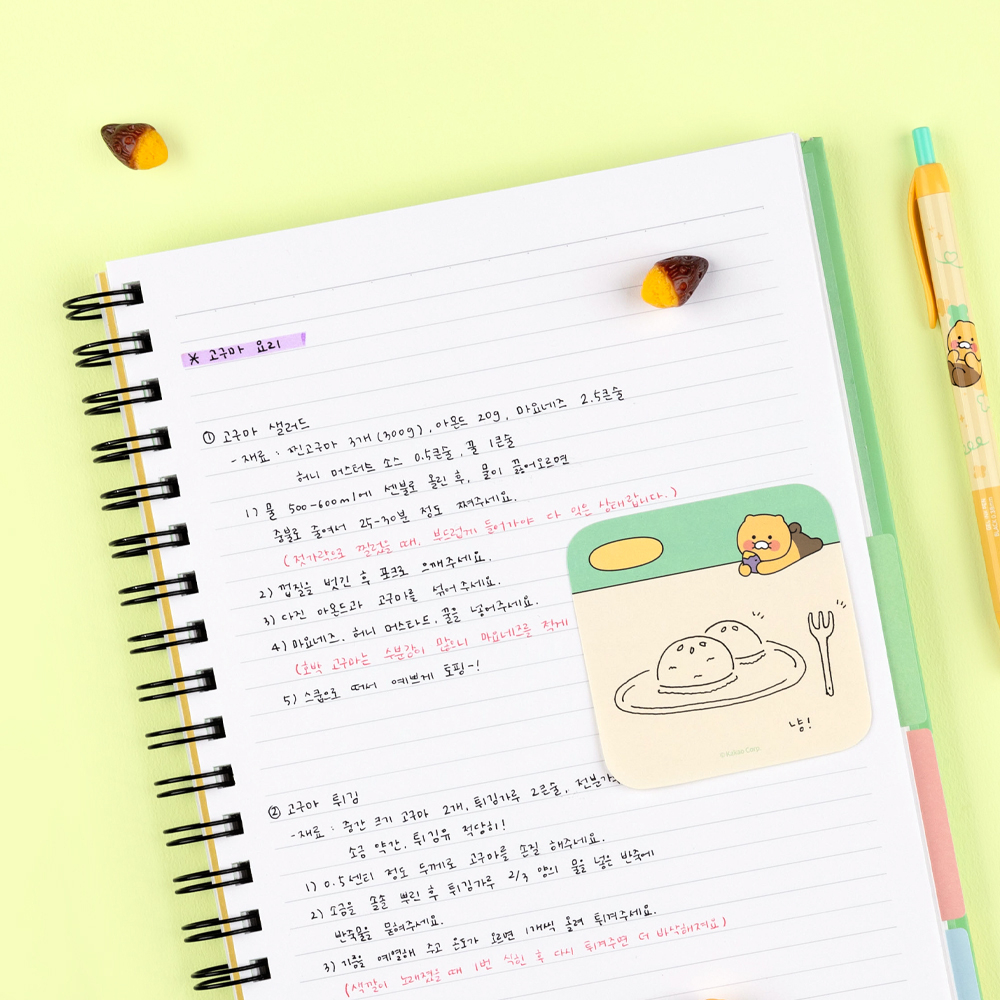 * 고구마 요리
① 고구마 샐러드
- 재료 : 찐고구마 3개 (300g), 아몬드 20g, 마요네즈 2.5큰술
허니 머스터드 소스 0.5큰술, 꿀 1큰술
1) 물 500-600ml에 센불로 올린 후, 물이 끓어오르면
중불로 줄여서 25-30분 정도 쪄주세요.
(젓가락으로 찔렀을 때, 부드럽게 들어가야 다 익은 상태랍니다.)
2) 껍질을 벗긴 후 포크로 으깨주세요.
3) 다진 아몬드과 고구마를 섞어주세요.
4) 마요네즈, 허니 머스타드, 꿀을 넣어주세요.
(호박 고구마는 수분감이 많으니 마요네즈를 적게
5) 스쿱으로 떠서 예쁘게 토핑~!
냠!
©Kakao Corp.
② 고구마 튀김
- 재료 : 중간 크기 고구마 2개, 튀김가루 2큰술, 전분가
소금 약간, 튀김유 적당히!
1) 0.5센티 정도 두께로 고구마를 손질 해주세요.
2) 소금을 솔솔 뿌린 후 튀김가루 2/3 양의 물을 넣은 반죽에
반죽물을 묻혀주세요.
3) 기름을 예열해 주고 온도가 오르면 1개씩 올려 튀겨주세요.
(색깔이 노래졌을 때 1번 식힌 후 다시 튀겨주면 더 바삭해져요)